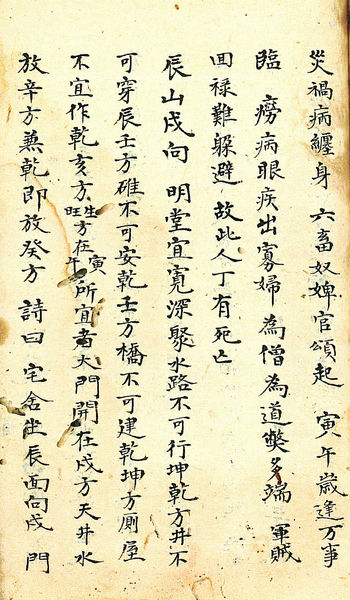 災禍病纏身 六畜奴婢官頌起 寅午歲逢万事
臨 癆病眼疾出寡婦 為僧為道獘多端 軍賊
囬禄難躲避 故此人丁有死亡
辰山戌向 明堂宜寬深聚水路不可行坤乾方井不
可穿辰壬方碓不可安乾壬方橋不可建乾坤方厠屋
不宜作乾亥方生旺方在寅午所宜者大門開在戌方天井水
放辛方兼乾即放癸方 詩曰 宅舍坐辰面向戌 門